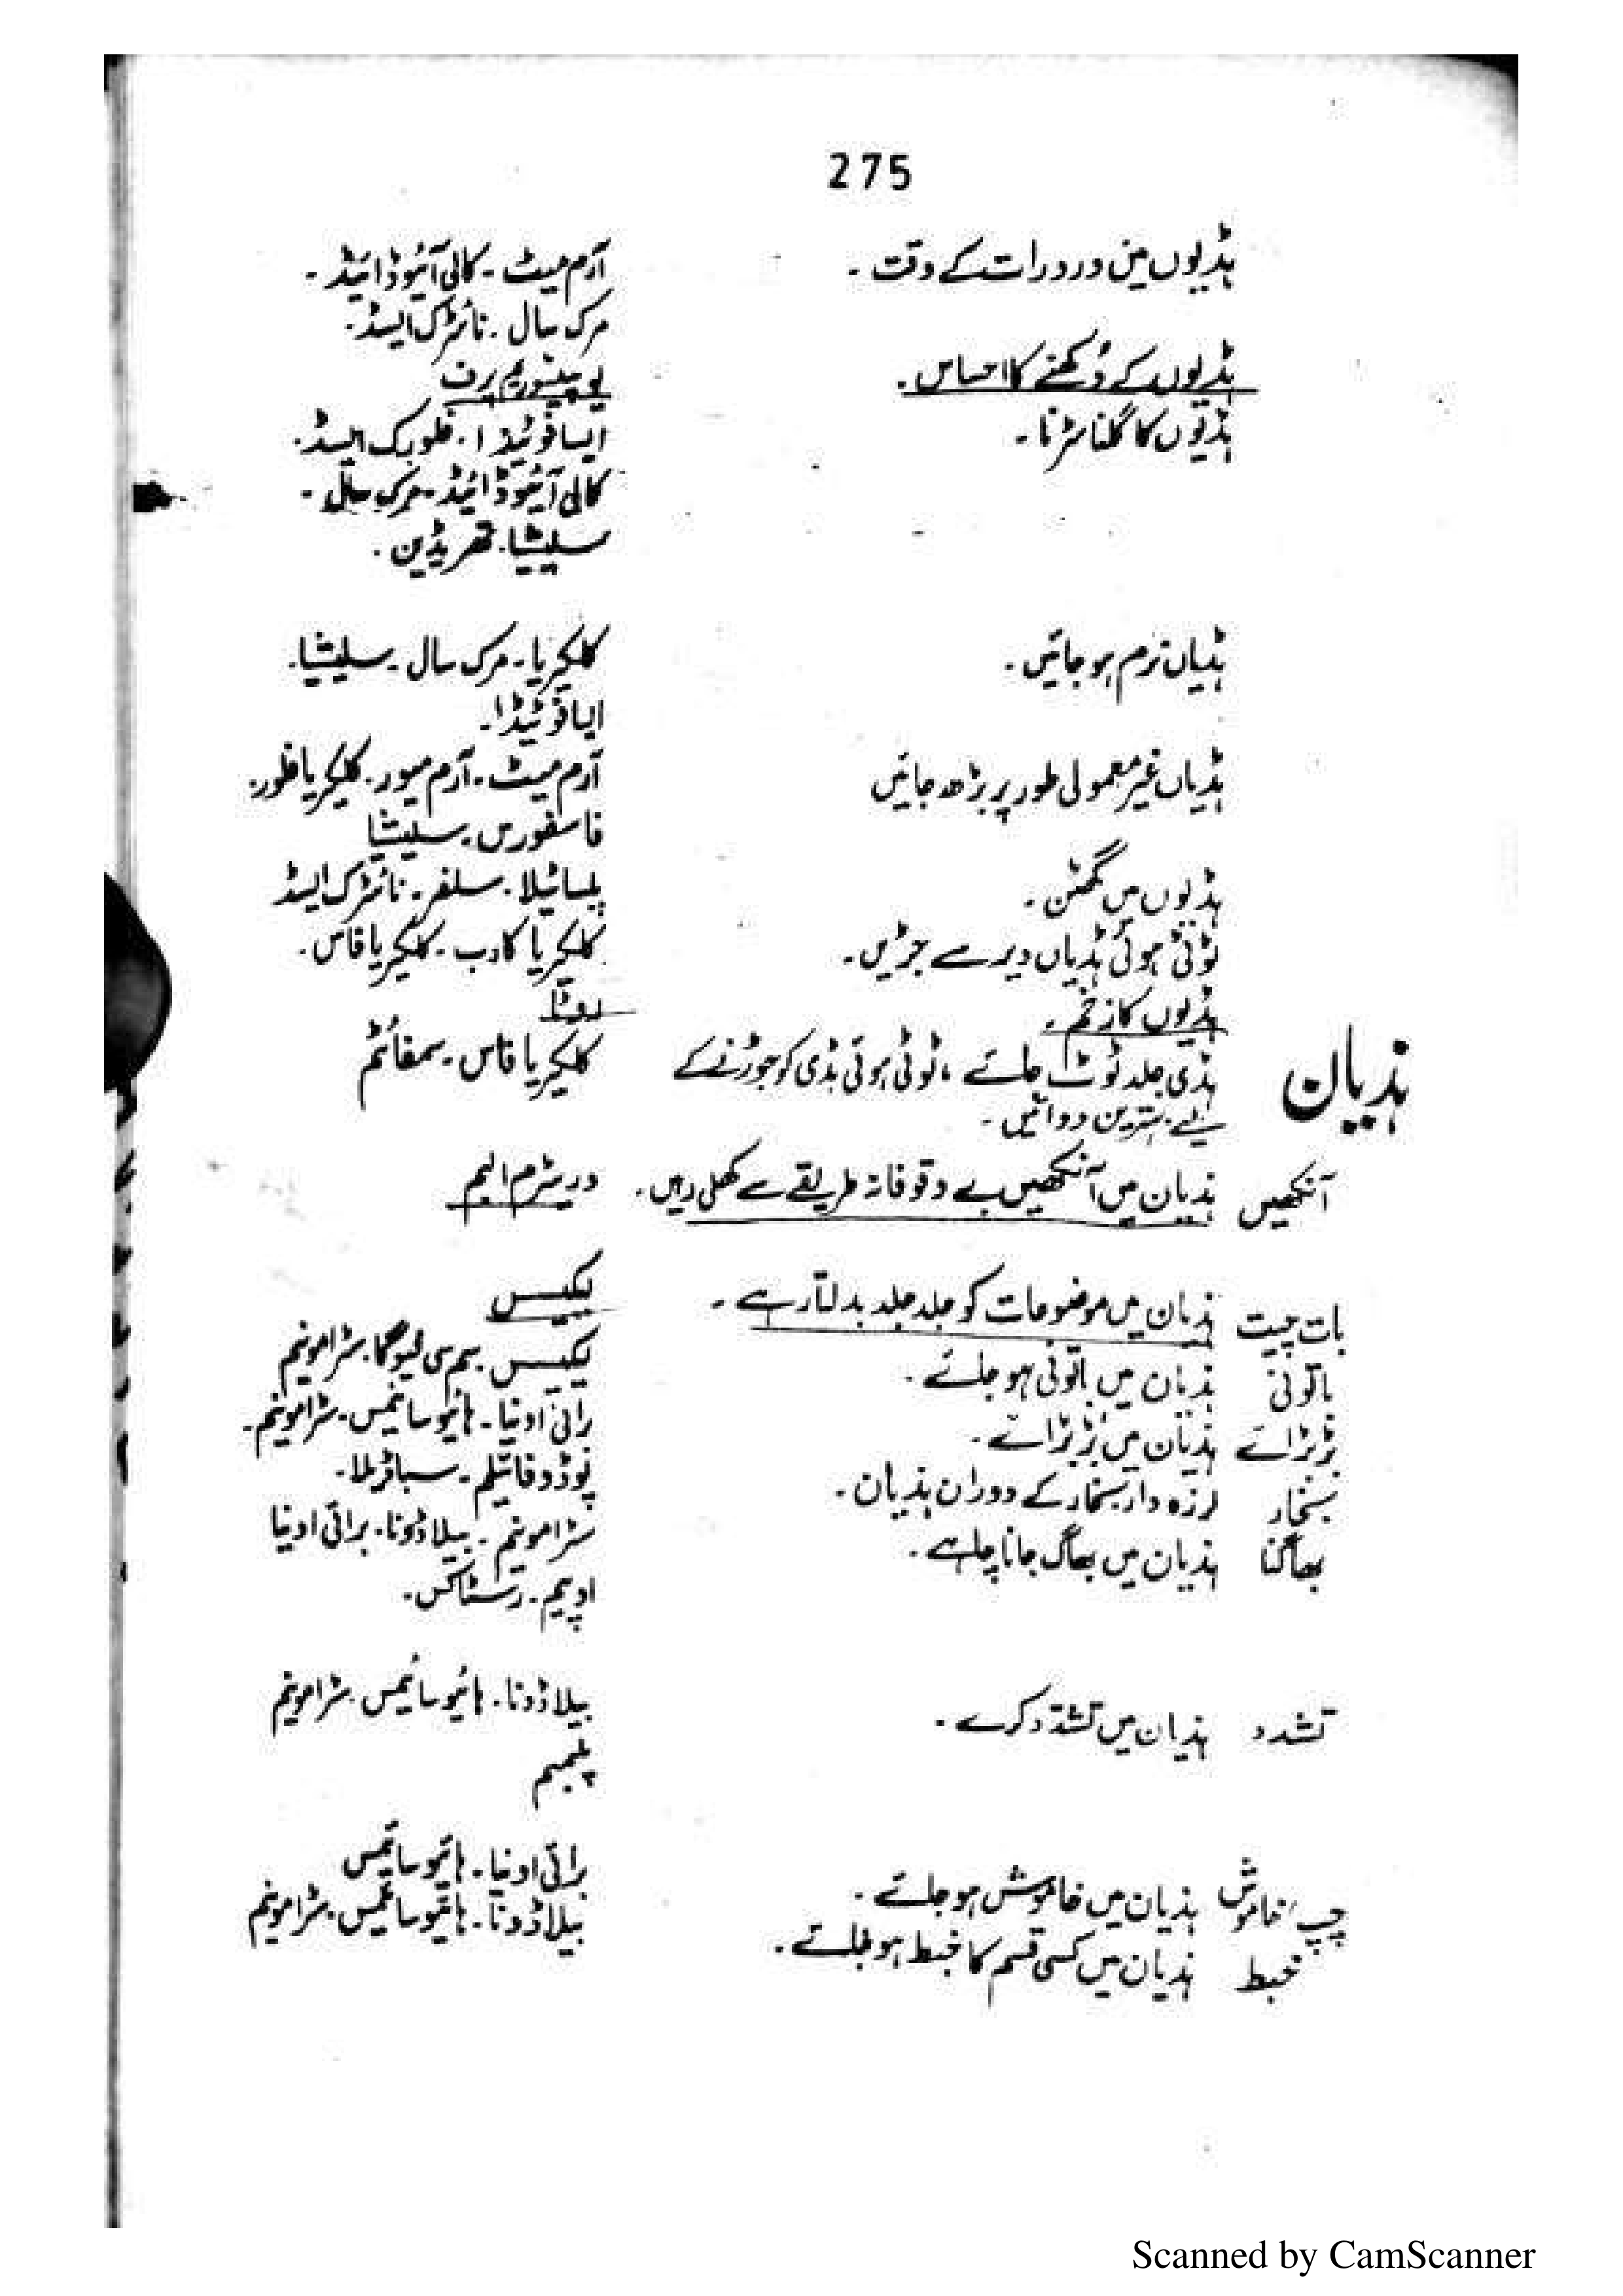 275
ہڈیوں میں درد رات کے وقت ۔ آرم میٹ ۔ کالی آئیوڈائیڈ ۔
مرک سال ۔ نائٹرک ایسڈ ۔
ہڈیوں کے دُکھنے کا احساس ۔ یوپیٹوریم پرف
ہڈیوں کا گلنا سڑنا ۔ ایسافوئیڈا ۔ فلورک ایسڈ ۔
کالی آئیوڈائیڈ ۔ مرک سال ۔
سلیشیا ۔ تھریڈین ۔
ہڈیاں نرم ہو جائیں ۔ کلکیریا ۔ مرک سال ۔ سلیشیا ۔
ایسافوئیڈا ۔
ہڈیاں غیر معمولی طور پر بڑھ جائیں آرم میٹ ۔ آرم میور ۔ کلکیریا فلور ۔
فاسفورس ۔ سلیشیا
ہڈیوں میں گھٹن ۔ پلساٹیلا ۔ سلفر ۔ نائٹرک ایسڈ
ٹوٹی ہوئی ہڈیاں دیر سے جڑیں ۔ کلکیریا کارب ۔ کلکیریا فاس ۔
ہڈیوں کا زخم ۔ روٹا
ہذیان ہڈی جلد ٹوٹ جائے ، ٹوٹی ہوئی ہڈی کو جوڑنے کے کلکیریا فاس ۔ سمفائٹم
لئے بہترین دوائیں ۔
آنکھیں ہذیان میں آنکھیں بے وقوفانہ طریقے سے کھلی رہیں ۔ وریٹرم البم
بات چیت ہذیان میں موضوعات کو جلد جلد بدلتا رہے ۔ لیکیسس
باتونی ہذیان میں باتونی ہو جائے ۔ لیکیسس ۔ سمی سی فیوگا ۔ سٹرامونیم
بڑبڑائے ہذیان میں بڑبڑائے ۔ برائی اونیا ۔ ہائیوسائمس ۔ سٹرامونیم ۔
بخار لرزہ دار بخار کے دوران ہذیان ۔ پوڈوفائیلم ۔ سباڈیلا ۔
بھاگنا ہذیان میں بھاگ جانا چاہے ۔ سٹرامونیم ۔ بیلاڈونا ۔ برائی اونیا
اوپیم ۔ رسٹاکس ۔
تشدد ہذیان میں تشدّد کرے ۔ بیلاڈونا ۔ ہائیوسائمس ۔ سٹرامونیم
پلمبم
چپ، خاموش ہذیان میں خاموش ہو جائے ۔ برائی اونیا ۔ ہائیوسائمس
خبط ہذیان میں کسی قسم کا خبط ہو جائے ۔ بیلاڈونا ۔ ہائیوسائمس ۔ سٹرامونیم
Scanned by CamScanner